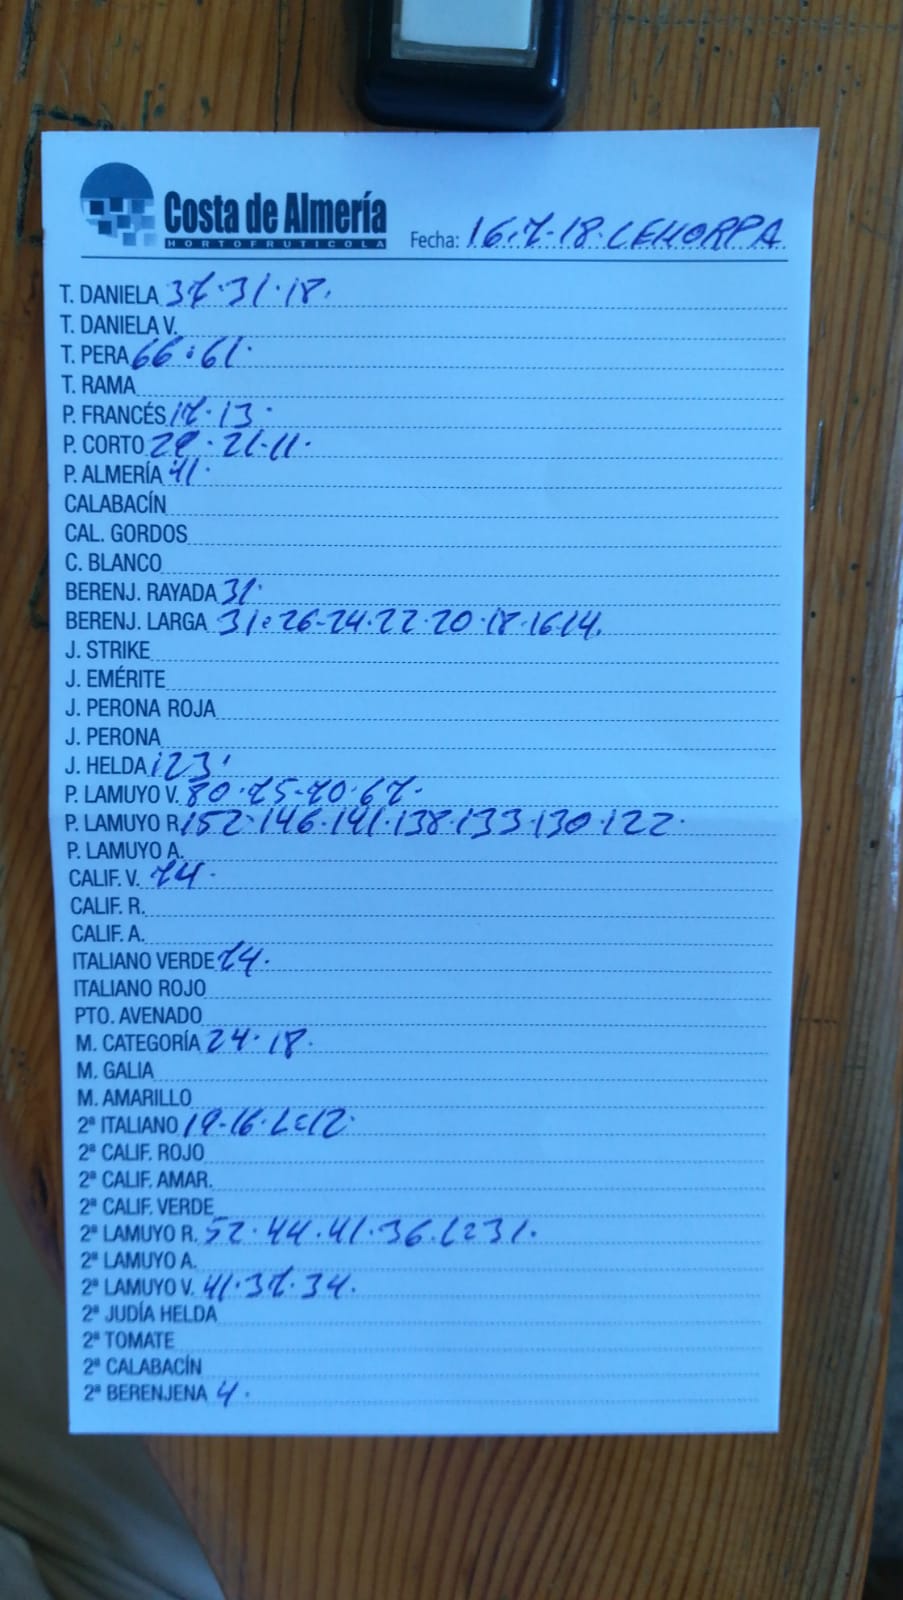 Costa de Almería
HORTOFRUTICOLA
Fecha: 16.7-18. LEHORPA
T. DANIELA 37.31.18.
T. DANIELA V.
T. PERA 66.61.
T. RAMA
P. FRANCÉS 17.13.
P. CORTO 29.21.11.
P. ALMERÍA 41.
CALABACÍN
CAL. GORDOS
C. BLANCO
BERENJ. RAYADA 31.
BERENJ. LARGA 31.26-24.22.20.18.16.14.
J. STRIKE
J. EMÉRITE
J. PERONA ROJA
J. PERONA
J. HELDA 123.
P. LAMUYO V. 80.75-70.67.
P. LAMUYO R. 152.146.141.138.133.130.122.
P. LAMUYO A.
CALIF. V. 74.
CALIF. R.
CALIF. A.
ITALIANO VERDE 74.
ITALIANO ROJO
PTO. AVENADO
M. CATEGORÍA 24.18.
M. GALIA
M. AMARILLO
2ª ITALIANO 19-16. 12.
2ª CALIF. ROJO
2ª CALIF. AMAR.
2ª CALIF. VERDE
2ª LAMUYO R. 52.44.41.36. 31.
2ª LAMUYO A.
2ª LAMUYO V. 41.37.34.
2ª JUDÍA HELDA
2ª TOMATE
2ª CALABACÍN
2ª BERENJENA 4.